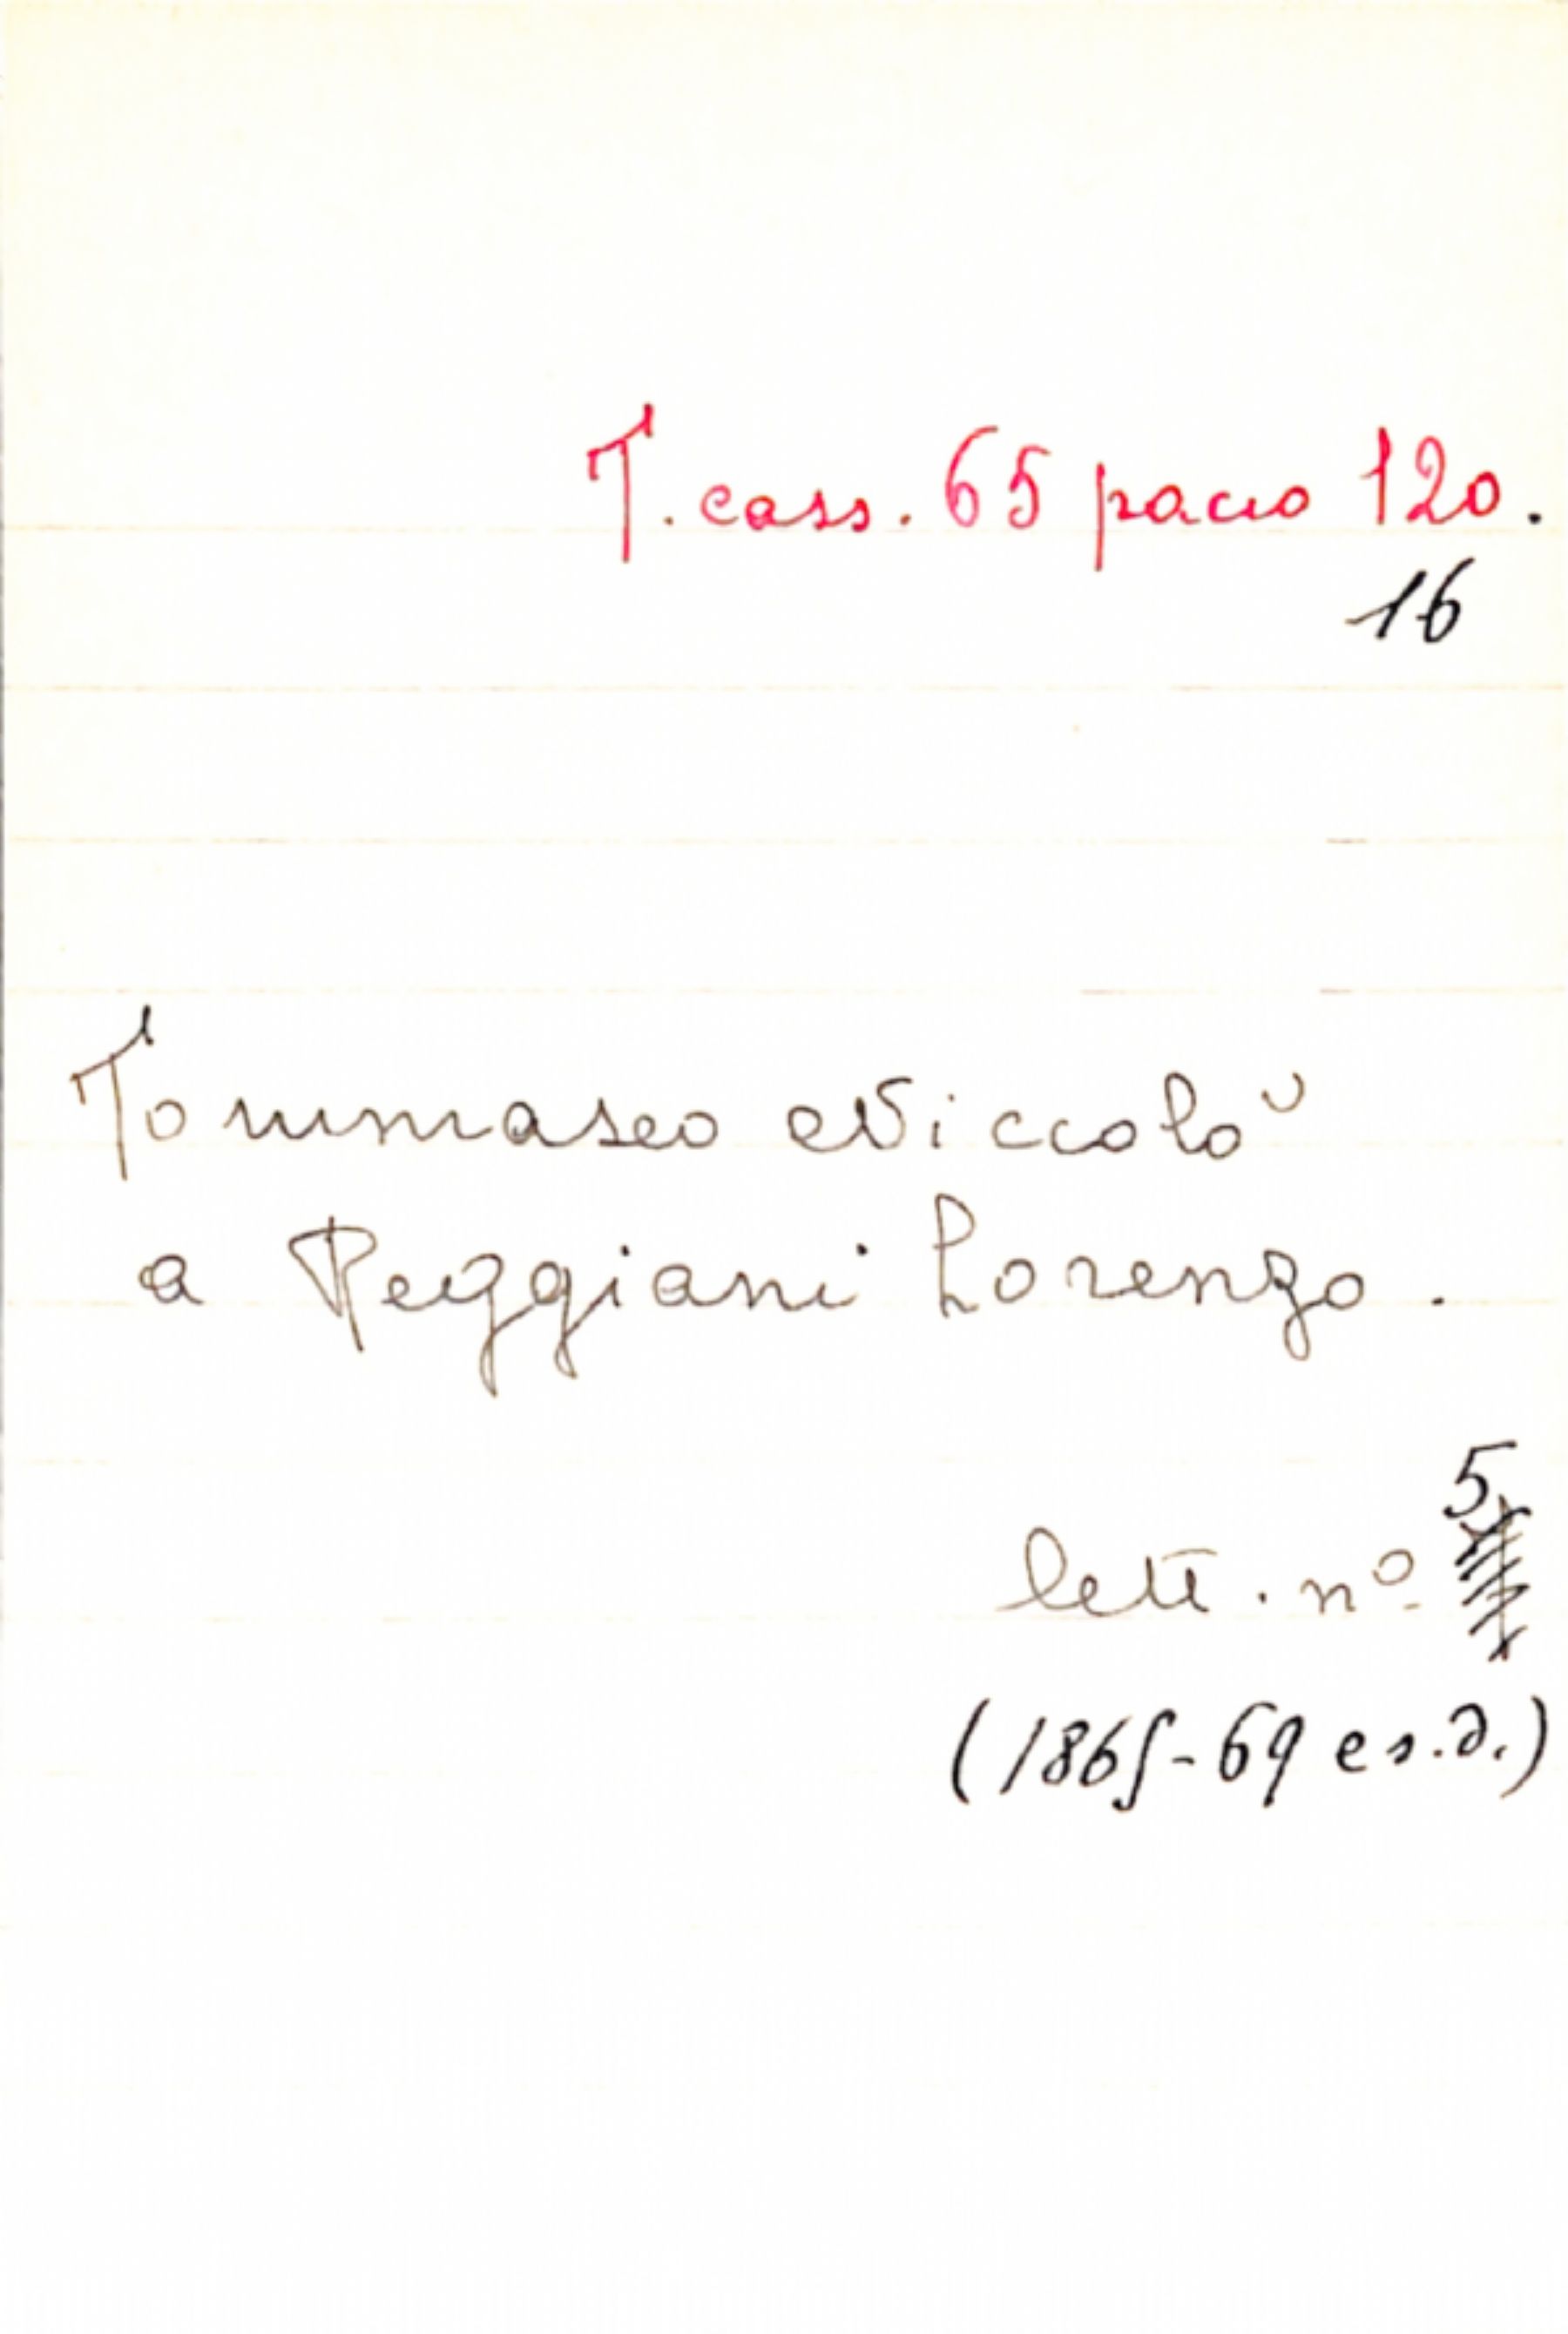 T. cass. 65 pacco 120.
16
Tommaseo Niccolò
a Reggiani Lorenzo.
5
lett. nº
(1865-69 e s.d.)